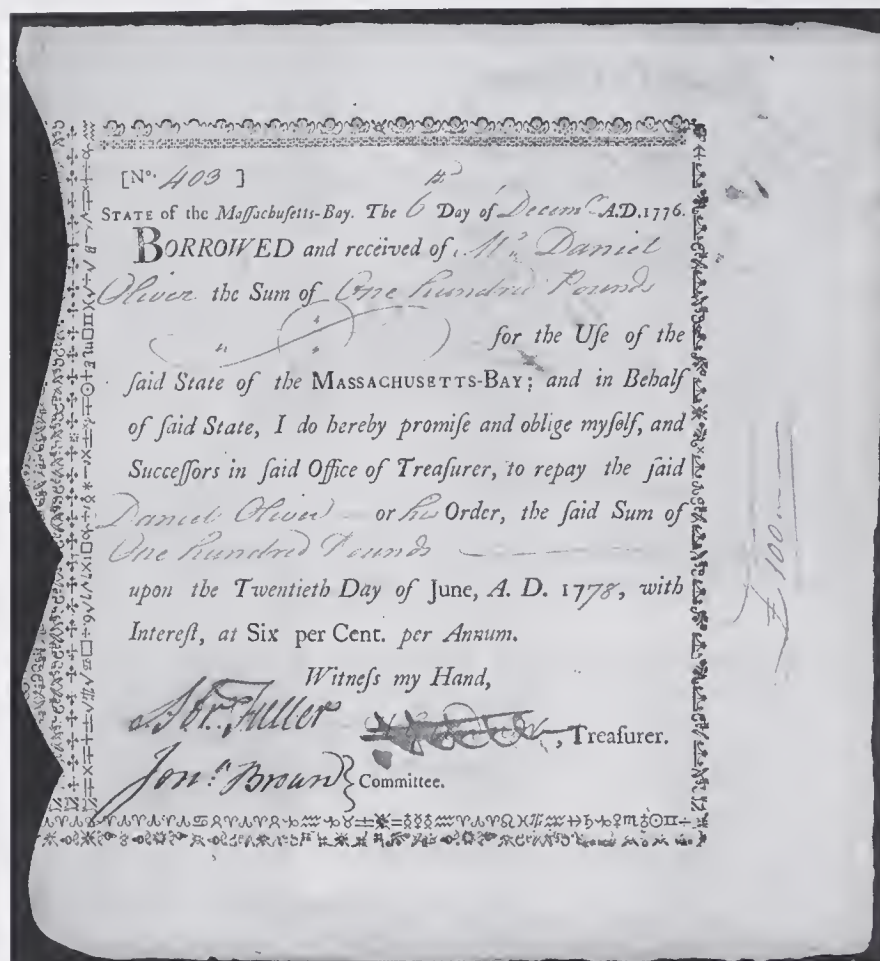 [No. 403 ]
STATE of the Maſſachuſetts-Bay. The 6th Day of Decemr A.D. 1776.
BORROWED and received of Mr. Daniel
Oliver the Sum of One hundred Pounds
for the Uſe of the
ſaid State of the MASSACHUSETTS-BAY; and in Behalf
of ſaid State, I do hereby promiſe and oblige myſelf, and
Succeſſors in ſaid Office of Treaſurer, to repay the ſaid
Daniel Oliver or his Order, the ſaid Sum of
One hundred Pounds
upon the Twentieth Day of June, A. D. 1778, with
Intereſt, at Six per Cent. per Annum.
Witneſs my Hand,
Fuller
, Treaſurer.
Jona. Brown } Committee.
£100